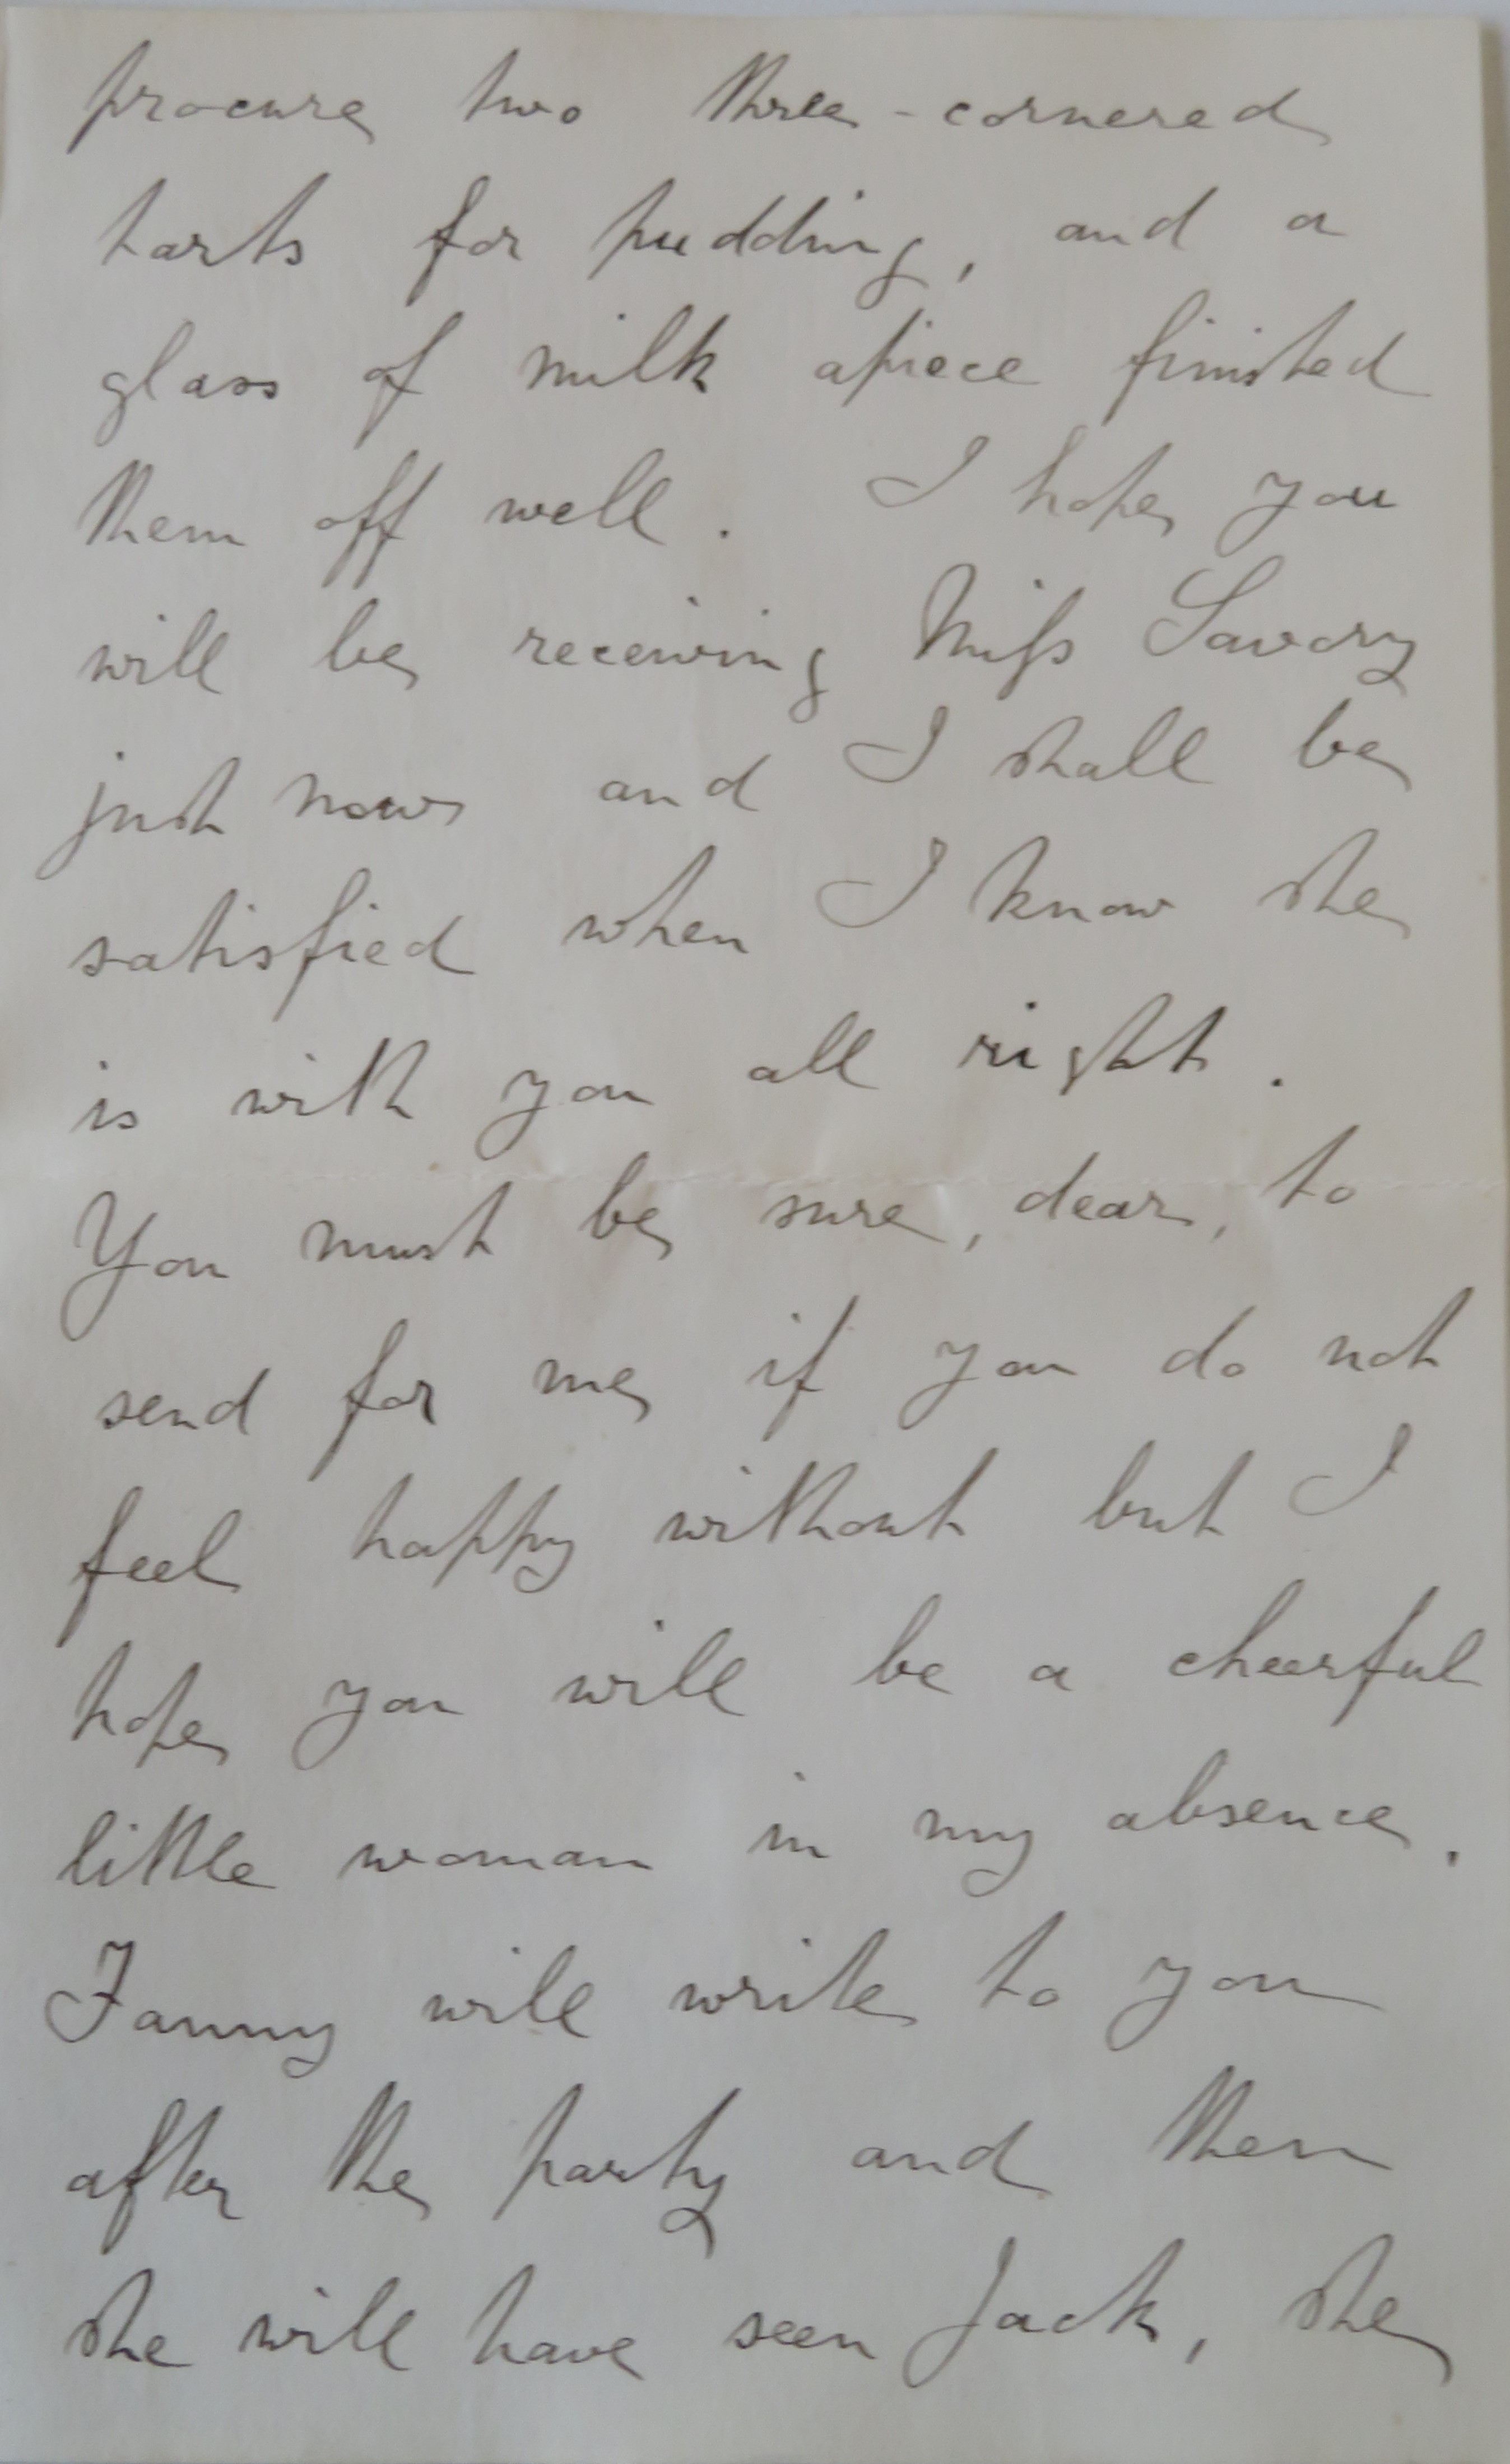 procure two three-cornered
tarts for pudding, and a
glass of milk apiece finished
them off well. I hope you
will be receiving Miss Savory
just now and I shall be
satisfied when I know she
is with you all right.
You must be sure, dear, to
send for me if you do not
feel happy without but I
hope you will be a cheerful
little woman in my absence.
Fanny will write to you
after the party and then
she will have seen Jack, she